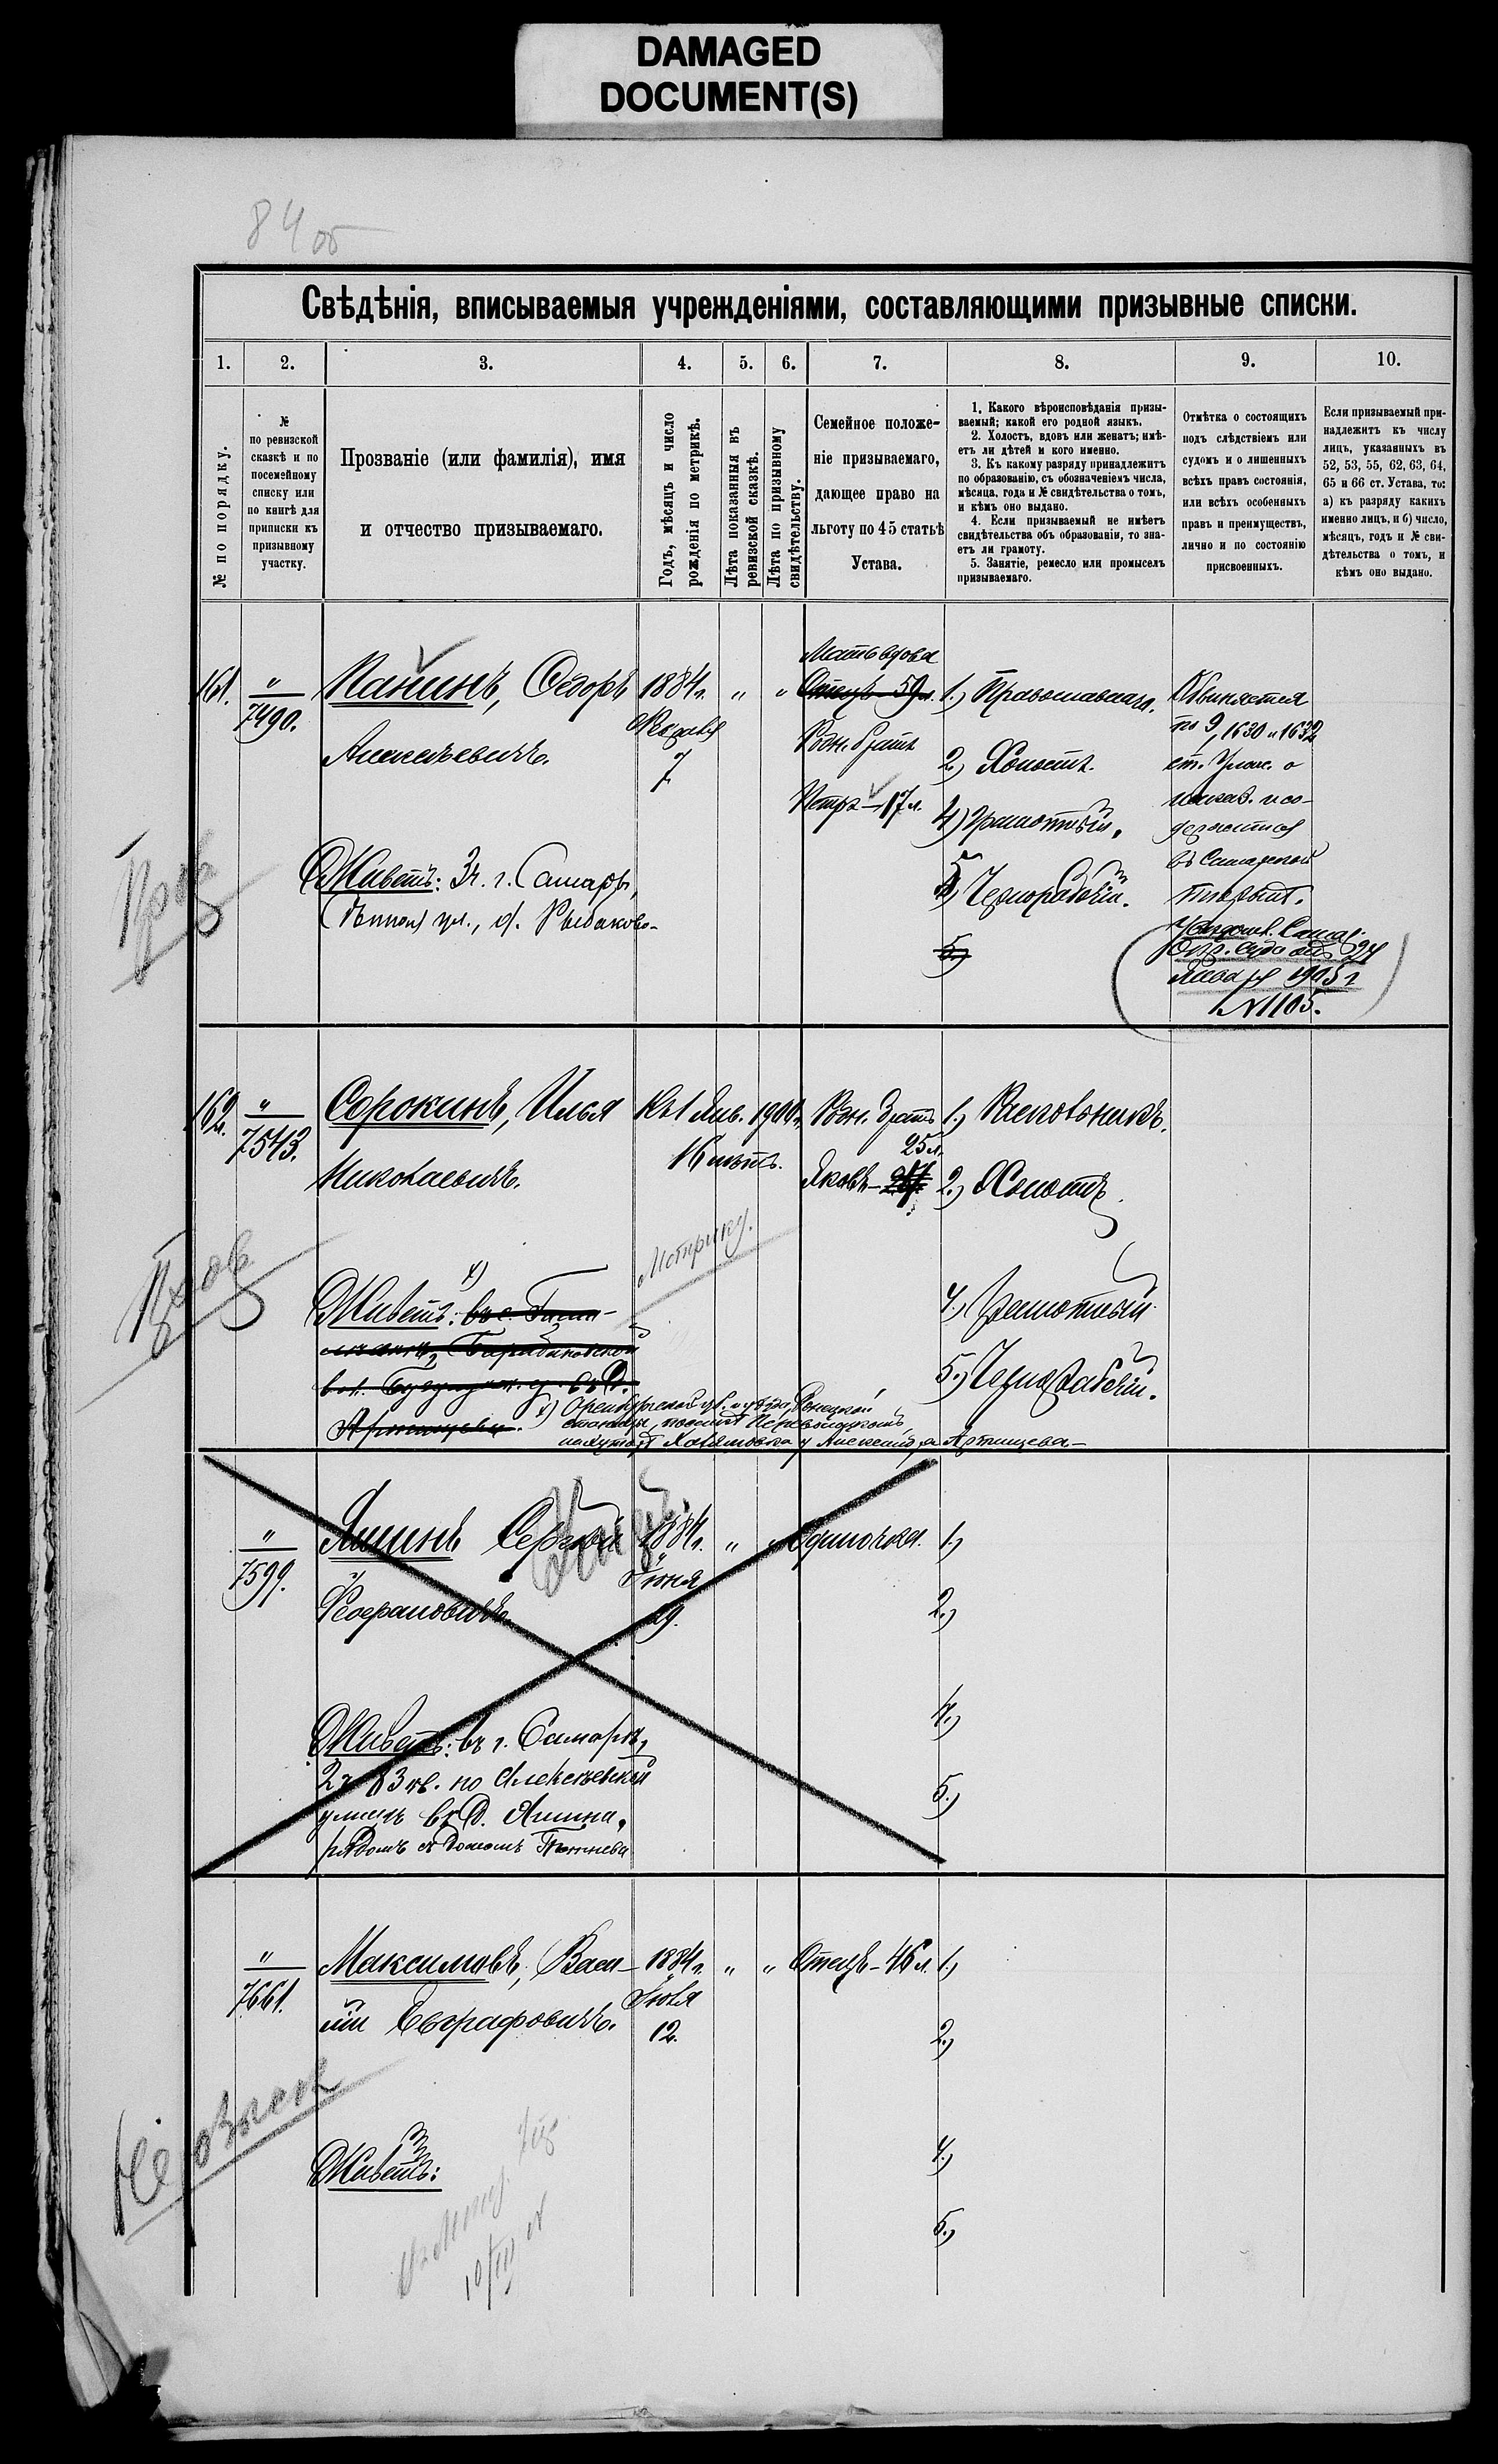 DAMAGED
DOCUMENT(S)
84 об
Свѣдѣнія, вписываемыя учрежденіями, составляющими призывные списки.
1. 2. 3. 4. 5. 6. 7. 8. 9. 10.
№ по порядку.
№
по ревизской
сказкѣ и по
посемейному
списку или
по книгѣ для
приписки къ
призывному
участку.
Прозваніе (или фамилія), имя
и отчество призываемаго.
Годъ, мѣсяцъ и число
рожденія по метрикѣ.
Лѣта показанныя въ
ревизской сказкѣ.
Лѣта по призывному
свидѣтельству.
Семейное положе-
ніе призываемаго,
дающее право на
льготу по 45 статьѣ
Устава.
1. Какого вѣроисповѣданія призы-
ваемый; какой его родной языкъ.
2. Холостъ, вдовъ или женатъ; имѣ-
етъ ли дѣтей и кого именно.
3. Къ какому разряду принадлежитъ
по образованію, съ обозначеніемъ числа,
мѣсяца, года и № свидѣтельства о томъ,
и кѣмъ оно выдано.
4. Если призываемый не имѣетъ
свидѣтельства объ образованіи, то зна-
етъ ли грамоту.
5. Занятіе, ремесло или промыселъ
призываемаго.
Отмѣтка о состоящихъ
подъ слѣдствіемъ или
судомъ и о лишенныхъ
всѣхъ правъ состоянія,
или всѣхъ особенныхъ
правъ и преимуществъ,
лично и по состоянію
присвоенныхъ.
Если призываемый при-
надлежитъ къ числу
лицъ, указанныхъ въ
52, 53, 55, 62, 63, 64,
65 и 66 ст. Устава, то:
а) къ разряду какихъ
именно лицъ, и б) число,
мѣсяцъ, годъ и № сви-
дѣтельства о томъ, и
кѣмъ оно выдано.
161.
"
7490.
Панинъ, Ѳедоръ
Алексѣевичъ.
Живетъ: 3 ч. г. Самары,
ул., д. Рыбаково-
1884 г.
7
" "
Мать вдова
Отецъ - 59 л.
Родн. братъ
Петръ - 17 л.
1.) Православнаго.
2.) Холостъ.
4.) Грамотный.
5) Чернорабочій.
5.)
Обвиняется
по 9, 1630 и 1632
ст. Улож. о
наказ. и со-
держится
въ Самарской
тюрьмѣ.
Увѣдомл. Самар.
Окр. суда отъ 27
Января 1905 г
№ 1105.
162.
"
7543.
Сорокинъ, Илья
Николаевичъ.
Живетъ: въ с.
х) Оренбургской губ. и уѣзда,
станицы,
у Артищева
Къ 1 Янв. 1900 г.
16 лѣтъ.
Метрику.
Родн. братъ
25 л.
Яковъ -
1.) Раскольникъ.
2.) Холостъ.
4.) Грамотный
5.) Чернорабочій.
"
7599.
Яшинъ Сергѣй
Живетъ: въ г. Самарѣ,
2 ч. 83 кв. по Алексѣевской
улицѣ въ д. Яшина,
рядомъ съ домомъ
1884 г.
Іюня
29.
" "
Одиночка.
1.)
2.)
4.)
5.)
"
7661.
Максимовъ, Васи-
лій Евграфовичъ.
Живетъ:
1884 г.
Іюля
12.
" "
Отецъ - 46 л.
1.)
2.)
4.)
5.)
Не розыск
10/III